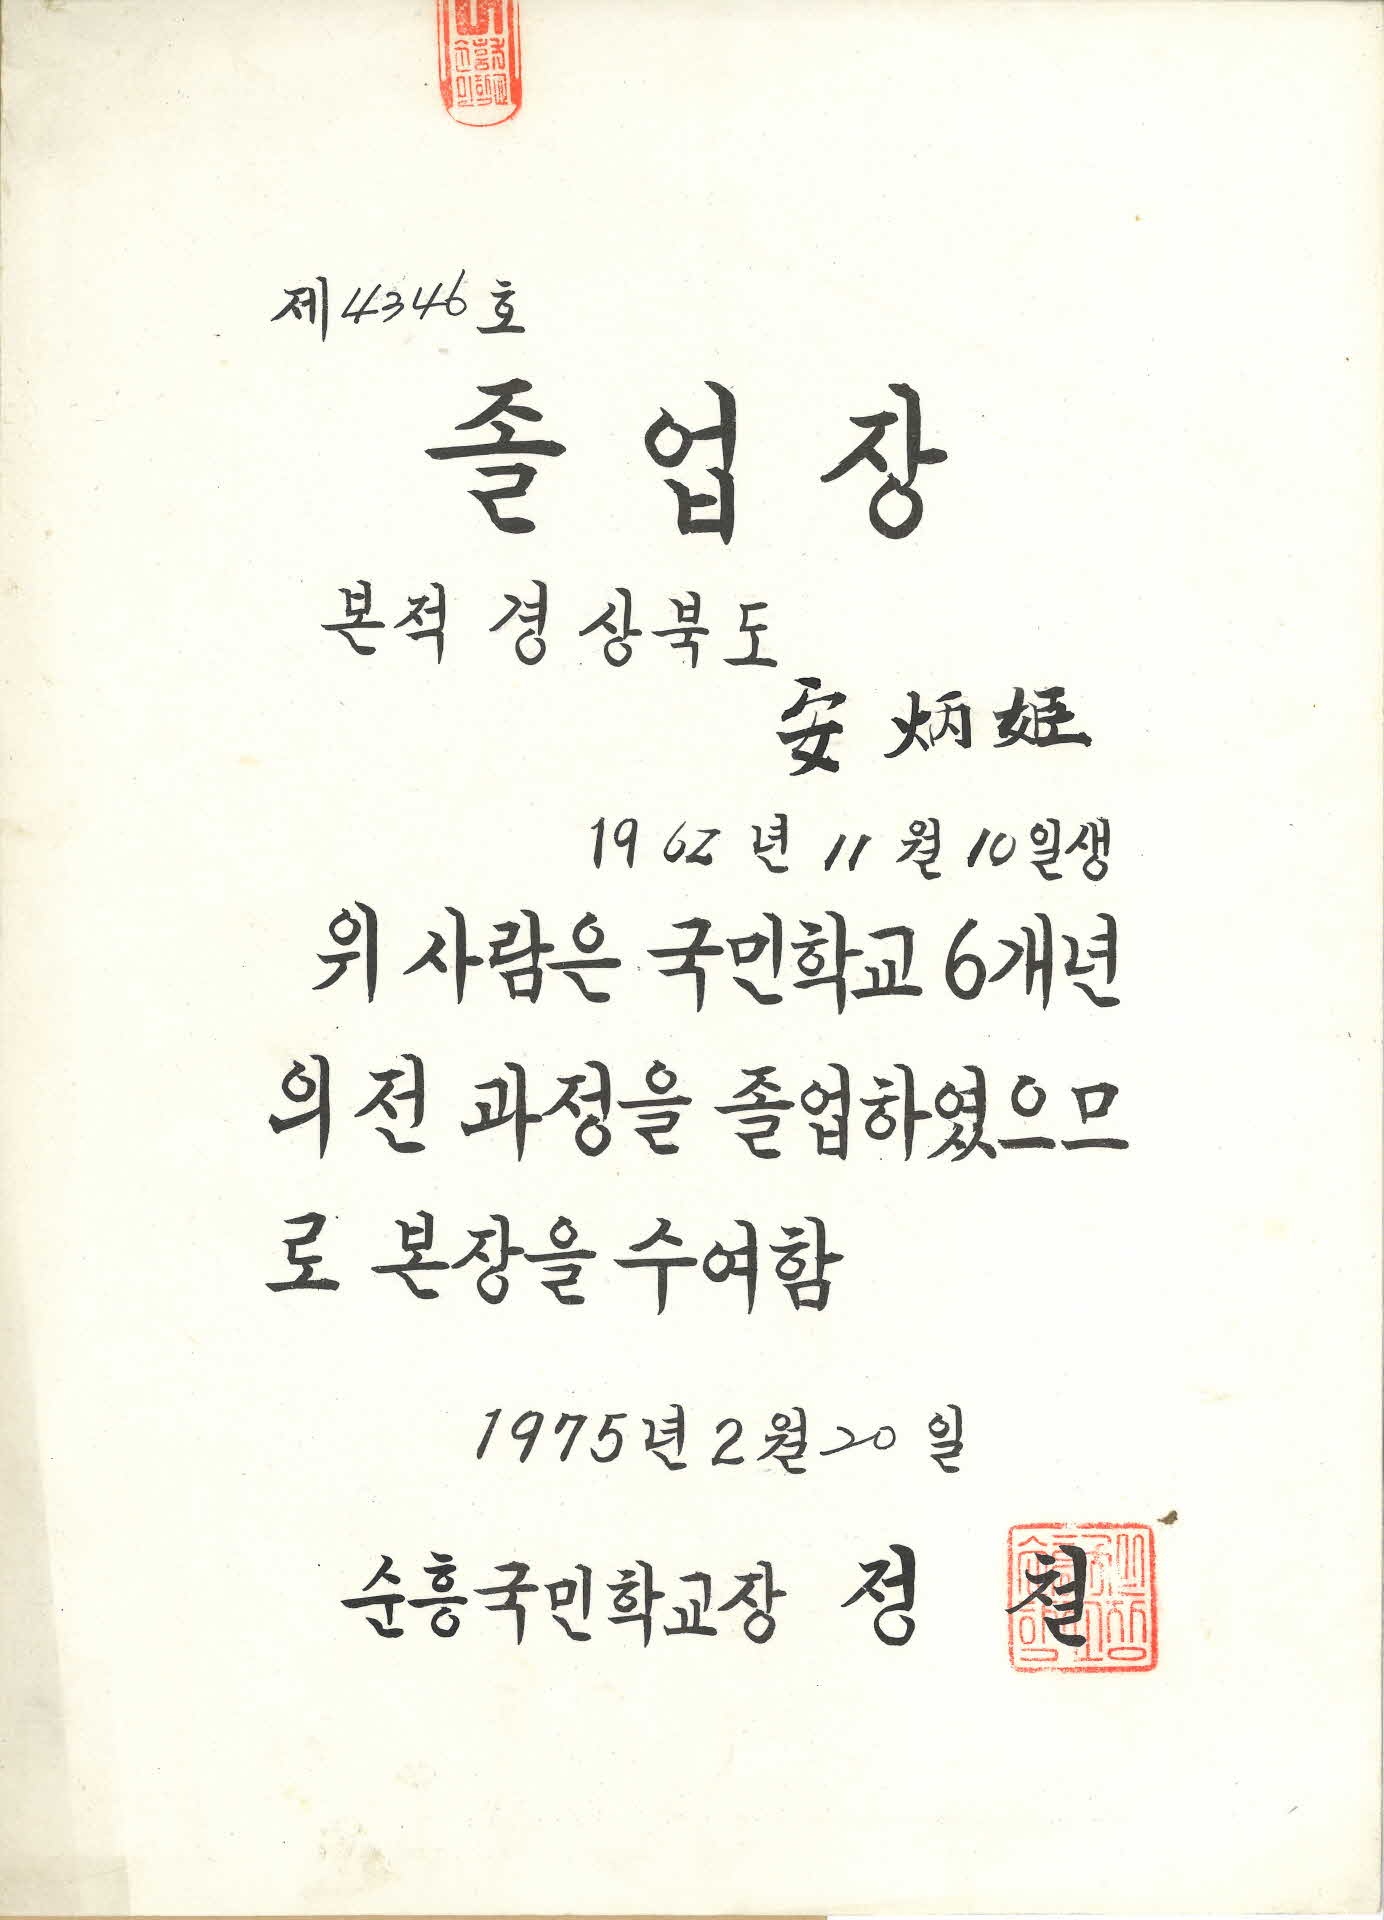 제4346호
졸업장
본적 경상북도
安炳姬
1962년 11월 10일생
위 사람은 국민학교 6개년
의 전 과정을 졸업하였으므
로 본장을 수여함
1975년 2월 20일
순흥국민학교장 정 철